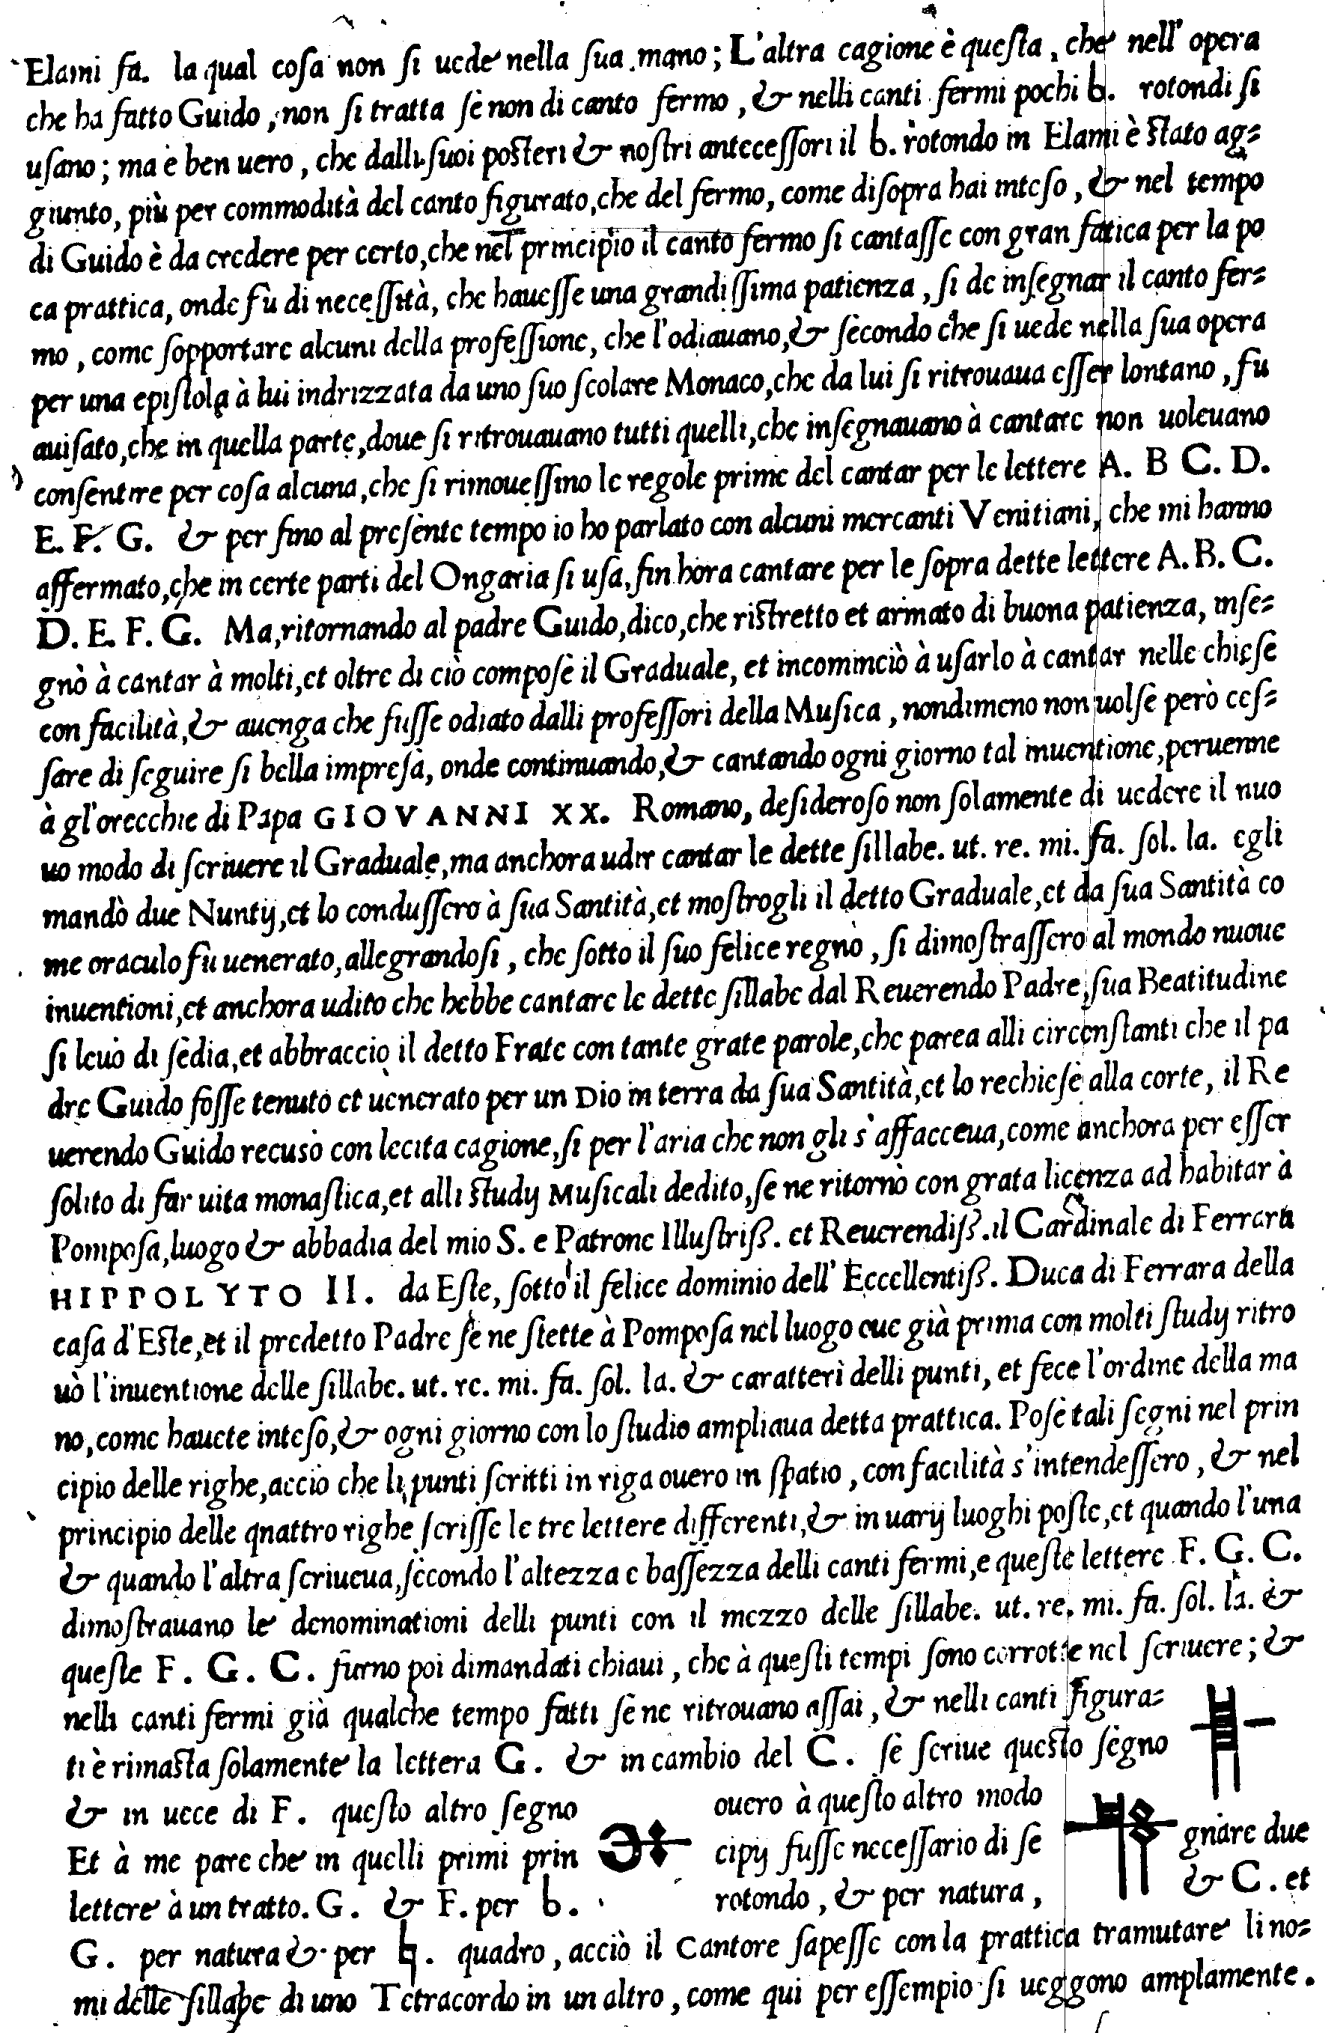 Elami fa. la qual cosa non si uede nella sua mano; L'altra cagione è questa, che nell' opera
che ha fatto Guido, non si tratta se non di canto fermo, & nelli canti fermi pochi b. rotondi si
usano; ma è ben uero, che dalli suoi posteri & nostri antecessori il b. rotondo in Elami è stato ag=
giunto, più per commodità del canto figurato, che del fermo, come disopra hai inteso, & nel tempo
di Guido è da credere per certo, che nel principio il canto fermo si cantasse con gran fatica per la po
ca prattica, onde fù di necessità, che hauesse una grandissima patienza, si de insegnar il canto fer=
mo, come sopportare alcuni della professione, che l'odiauano, & secondo che si uede nella sua opera
per una epistola à lui indrizzata da uno suo scolare Monaco, che da lui si ritrouaua esser lontano, fu
auisato, che in quella parte, doue si ritrouauano tutti quelli, che insegnauano à cantare non uoleuano
consentire per cosa alcuna, che si rimouessino le regole prime del cantar per le lettere A. B C. D.
E. F. G. & per fino al presente tempo io ho parlato con alcuni mercanti Venitiani, che mi hanno
affermato, che in certe parti del Ongaria si usa, fin hora cantare per le sopra dette lettere A. B. C.
D. E. F. G. Ma, ritornando al padre Guido, dico, che ristretto et armato di buona patienza, inse=
gnò à cantar à molti, et oltre di ciò compose il Graduale, et incominciò à usarlo à cantar nelle chiese
con facilità, & auenga che fusse odiato dalli professori della Musica, nondimeno non uolse però ces=
sare di seguire si bella impresa, onde continuando, & cantando ogni giorno tal inuentione, peruenne
à gl'orecchie di Papa GIOVANNI XX. Romano, desideroso non solamente di uedere il nuo
uo modo di scriuere il Graduale, ma anchora udir cantar le dette sillabe. ut. re. mi. fa. sol. la. egli
mandò due Nuntij, et lo condussero à sua Santità, et mostrogli il detto Graduale, et da sua Santità co
me oraculo fu uenerato, allegrandosi, che sotto il suo felice regno, si dimostrassero al mondo nuoue
inuentioni, et anchora udito che hebbe cantare le dette sillabe dal Reuerendo Padre, sua Beatitudine
si leuò di sedia, et abbracciò il detto Frate con tante grate parole, che parea alli circonstanti che il pa
dre Guido fosse tenuto et uenerato per un Dio in terra da sua Santità, et lo rechiese alla corte, il Re
uerendo Guido recusò con lecita cagione, si per l'aria che non gli s'affacceua, come anchora per esser
solito di far uita monastica, et alli studij Musicali dedito, se ne ritornò con grata licenza ad habitar à
Pomposa, luogo & abbadia del mio S. e Patrone Illustriss. et Reuerendiss. il Cardinale di Ferrara
HIPPOLYTO II. da Este, sotto il felice dominio dell' Eccellentiss. Duca di Ferrara della
casa d'Este, et il predetto Padre se ne stette à Pomposa nel luogo oue già prima con molti studij ritro
uò l'inuentione delle sillabe. ut. re. mi. fa. sol. la. & caratteri delli punti, et fece l'ordine della ma
no, come hauete inteso, & ogni giorno con lo studio ampliaua detta prattica. Pose tali segni nel prin
cipio delle righe, acciò che li punti scritti in riga ouero in spatio, con facilità s'intendessero, & nel
principio delle qnattro righe scrisse le tre lettere differenti, & in uarij luoghi poste, et quando l'una
& quando l'altra scriueua, secondo l'altezza e bassezza delli canti fermi, e queste lettere F. G. C.
dimostrauano le denominationi delli punti con il mezzo delle sillabe. ut. re. mi. fa. sol. la. &
queste F. G. C. furno poi dimandati chiaui, che à questi tempi sono corrotte nel scriuere; &
nelli canti fermi già qualche tempo fatti se ne ritrouano assai, & nelli canti figura=
ti è rimasta solamente la lettera G. & in cambio del C. se scriue questo segno
& in uece di F. questo altro segno ouero à questo altro modo
Et à me pare che in quelli primi prin cipij fusse necessario di se gnare due
lettere à un tratto. G. & F. per b. rotondo, & per natura, & C. et
G. per natura & per ♮. quadro, acciò il Cantore sapesse con la prattica tramutare li no=
mi delle sillabe di uno Tetracordo in un altro, come qui per essempio si ueggono amplamente.